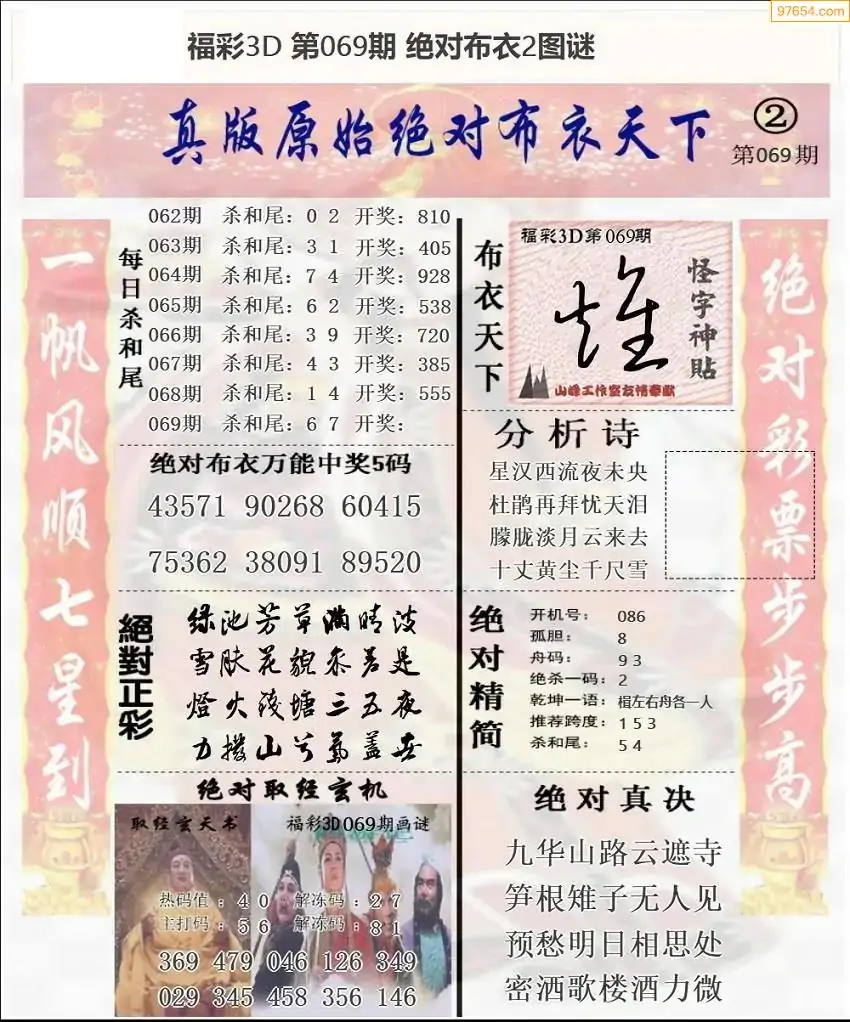 97654.com
福彩3D 第069期 绝对布衣2图谜
真版原始绝对布衣天下
②
第069期
一帆风顺七星到
每日杀和尾
062期 杀和尾：0 2 开奖：810
063期 杀和尾：3 1 开奖：405
064期 杀和尾：7 4 开奖：928
065期 杀和尾：6 2 开奖：538
066期 杀和尾：3 9 开奖：720
067期 杀和尾：4 3 开奖：385
068期 杀和尾：1 4 开奖：555
069期 杀和尾：6 7 开奖：
绝对布衣万能中奖5码
43571 90268 60415
75362 38091 89520
絕對正彩
绿池芳草满晴波
雪肤花貌参差是
燈火钱塘三五夜
力拨山兮氣盖世
绝对取经玄机
取经玄天书
福彩3D069期画谜
热码值：4 0 解冻码：2 7
主打码：5 6 解冻码：8 1
369 479 046 126 349
029 345 458 356 146
布衣天下
福彩3D第069期
怪字神貼
山峰工作室友情奉献
分析诗
星汉西流夜未央
杜鹃再拜忧天泪
朦胧淡月云来去
十丈黄尘千尺雪
绝对精简
开机号：086
孤胆：8
舟码：9 3
绝杀一码：2
乾坤一语：楫左右舟各一人
推荐跨度：1 5 3
杀和尾：5 4
绝对真决
九华山路云遮寺
笋根雉子无人见
预愁明日相思处
密洒歌楼酒力微
绝对彩票步步高